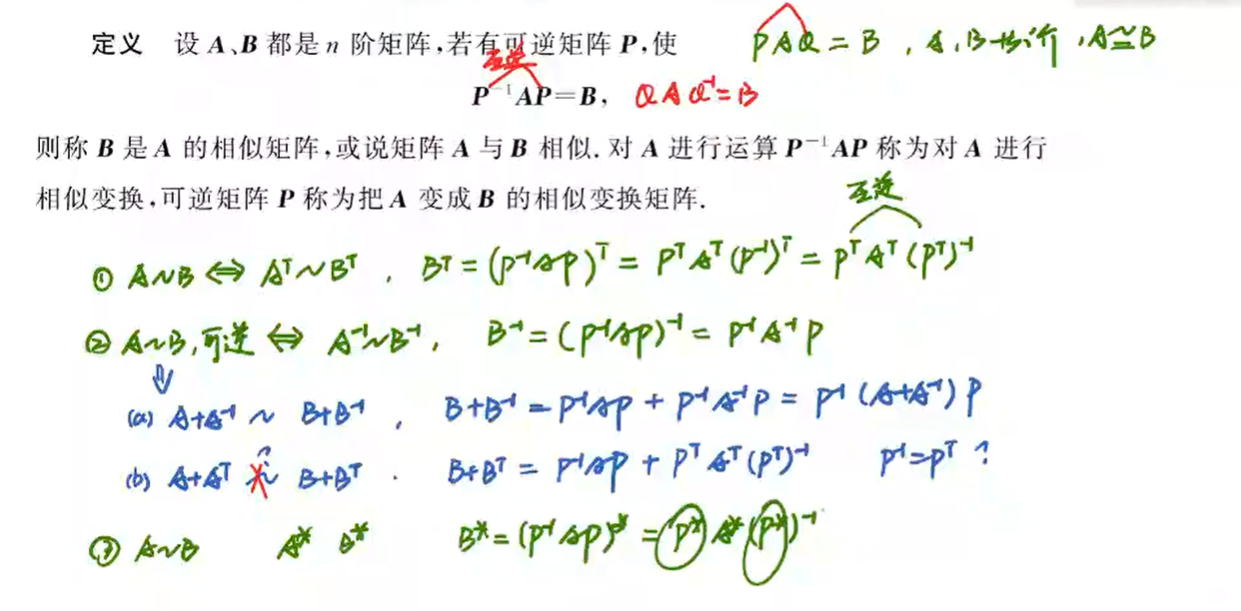 定义 设 A、B 都是 n 阶矩阵,若有可逆矩阵 P,使
PAQ = B , A,B等价 , A≅B
互逆
P⁻¹AP=B, QAQ⁻¹=B
则称 B 是 A 的相似矩阵,或说矩阵 A 与 B 相似. 对 A 进行运算 P⁻¹AP 称为对 A 进行
相似变换,可逆矩阵 P 称为把 A 变成 B 的相似变换矩阵.
互逆
① A~B ⇔ Aᵀ~Bᵀ , Bᵀ = (P⁻¹AP)ᵀ = PᵀAᵀ(P⁻¹)ᵀ = PᵀAᵀ(Pᵀ)⁻¹
② A~B,可逆 ⇔ A⁻¹~B⁻¹, B⁻¹ = (P⁻¹AP)⁻¹ = P⁻¹A⁻¹P
⇓
(a) A+A⁻¹ ~ B+B⁻¹ , B+B⁻¹ = P⁻¹AP + P⁻¹A⁻¹P = P⁻¹(A+A⁻¹)P
(b) A+Aᵀ ~ B+Bᵀ . B+Bᵀ = P⁻¹AP + PᵀAᵀ(Pᵀ)⁻¹ P⁻¹=Pᵀ ?
③ A~B A* B* B* = (P⁻¹AP)* = P*A*(P*)⁻¹